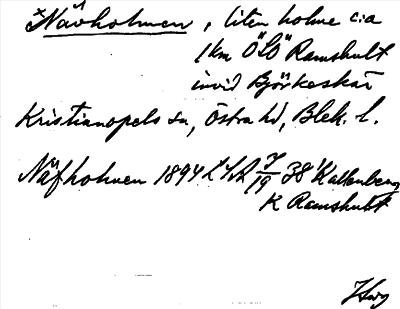 ×Nävholmen, liten holme c:a
1 km ÖSÖ Ramshult
invid Björkeskär
Kristianopels sn, Östra hd, Blek. l.
Näfholmen 1894 7/19 38 Kallenberg
K Ramshult